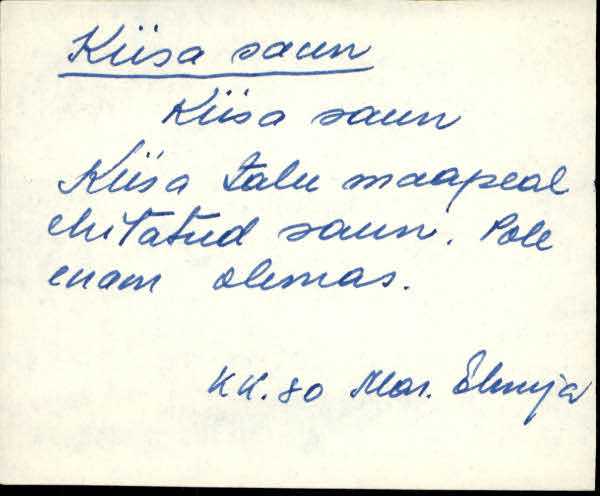 Kiisa saun
Kiisa saun
Kiisa talu maapeal
ehitatud saun. Pole
enam olemas.
KK. 80 Mar. Elmija